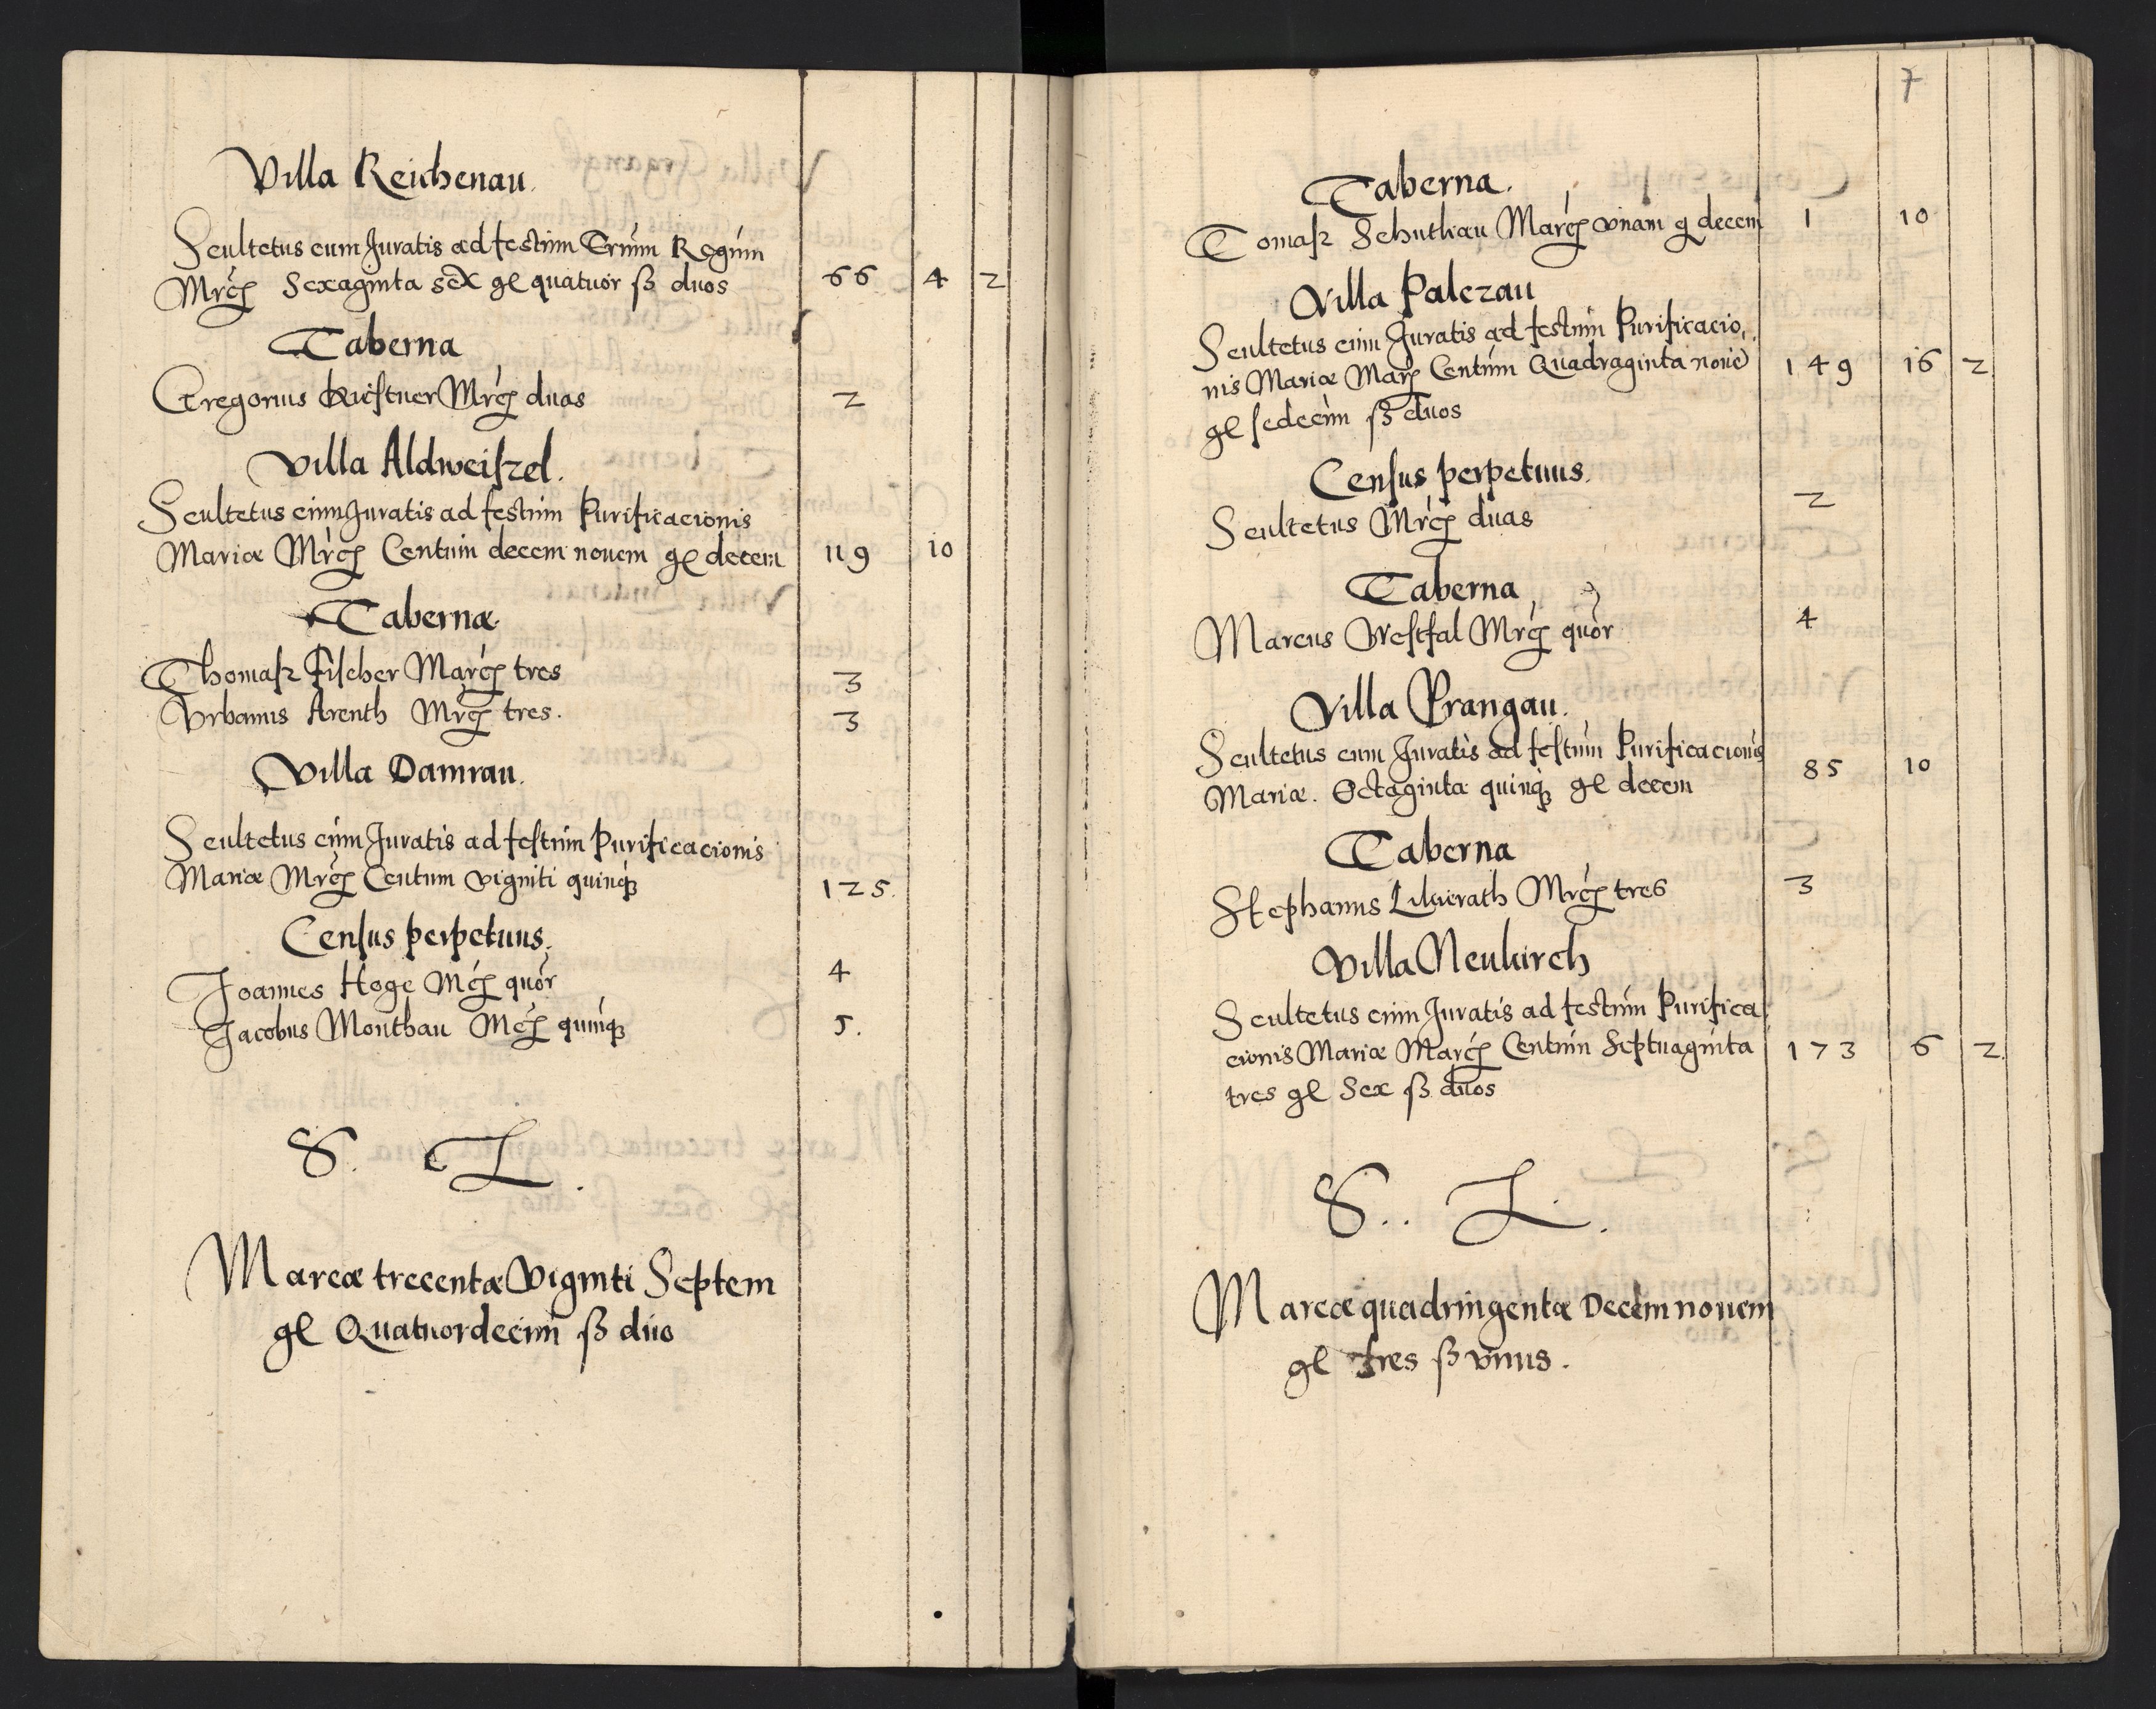 Villa Reichenau.
Scultetus cum Juratis ad festum Trium Regum
Mrcas Sexaginta sex gl quatuor ß duos 66 4 2
Taberna
Gregorius Mrcas duas 2
Villa Aldweiszel.
Scultetus cum Juratis ad festum Purificacionis
Mariæ Mrcas Centum decem nouem gl decem 119 10
Tabernæ
Thomasz Fischer Marcas tres 3
Vrbanus Arenth Mrcas tres. 3
Villa Damrau.
Scultetus cum Juratis ad festum Purificacionis
Mariæ Mrcas Centum vigniti quinqz 125.
Census perpetuus.
Joannes Hoge Mcas quor 4
Jacobus Monthau Mcas quinqz 5.
S. L.
Marcæ trecentæ Viginti Septem
gl Quatuordecim ß duo
7
Taberna.
Tomasz Schuthau Marcas vnam g decem 1 10
Villa Palczau
Scultetus cum Juratis ad festum Purificacio,
nis Mariæ Marcas Centum Quadraginta noue 149 16 2
gl sedecim ß duos
Census perpetuus.
Scultetus Mrcas duas 2
Taberna
Marcus Westfal Mrcas quor 4
Villa Prangau.
Scultetus cum Juratis ad festum Purificacionis
Mariæ. Octaginta quinqz gl decem 85 10
Taberna
Stephanus Mrcas tres 3
Villa Neukirch
Scultetus cum Juratis ad festum Purifica
cionis Mariæ Marcas Centum Septuaginta 173 6 2.
tres gl Sex ß duos
S.. L.
Marcæ quadringentæ Decem nouem
gl tres ß vnus.